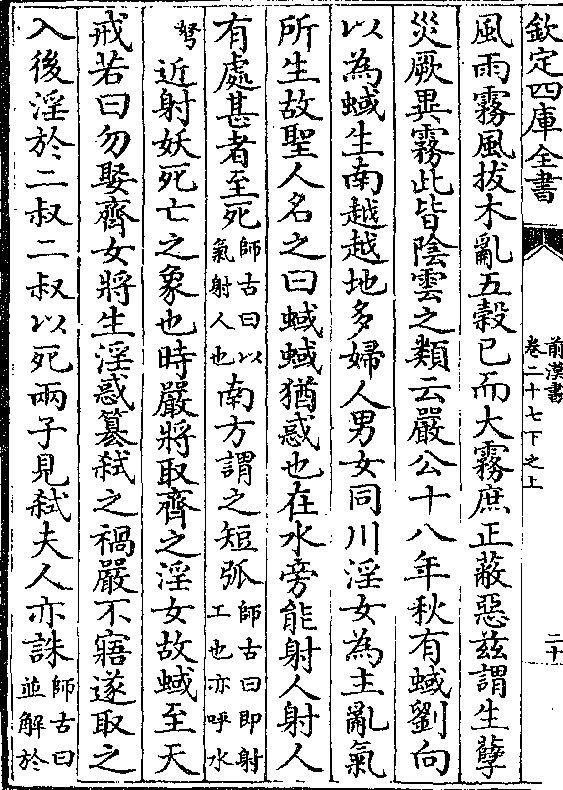 欽定四庫全書
前漢書
卷二十七下之上
二十
風雨霧風拔木亂五穀已而大霧庶正蔽惡茲謂生孽
災厥異霧此皆陰雲之類云嚴公十八年秋有蜮劉向
以為蜮生南越越地多婦人男女同川淫女為主亂氣
所生故聖人名之曰蜮蜮猶惑也在水旁能射人射人
有處甚者至死師古曰以氣射人也南方謂之短弧師古曰即射工也亦呼水
弩近射妖死亡之象也時嚴將取齊之淫女故蜮至天
戒若曰勿娶齊女將生淫惑篡弑之禍嚴不寤遂取之
入後淫於二叔二叔以死兩子見弑夫人亦誅師古曰並解於